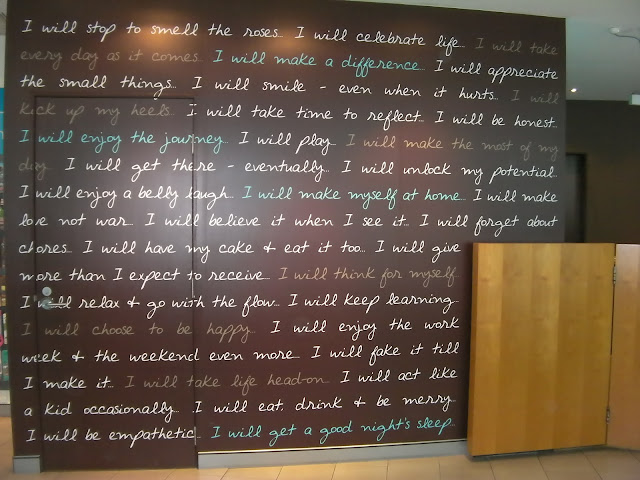 I will stop to smell the roses... I will celebrate life... I will take
every day as it comes... I will make a difference... I will appreciate
the small things... I will smile - even when it hurts... I will
kick up my heels... I will take time to reflect... I will be honest...
I will enjoy the journey... I will play... I will make the most of my
day... I will get there - eventually... I will unlock my potential...
I will enjoy a belly laugh... I will make myself at home... I will make
love not war... I will believe it when I see it... I will forget about
chores... I will have my cake & eat it too... I will give
more than I expect to receive... I will think for myself...
I will relax & go with the flow... I will keep learning...
I will choose to be happy... I will enjoy the work
week & the weekend even more... I will fake it till
I make it... I will take life head-on... I will act like
a kid occasionally... I will eat, drink & be merry...
I will be empathetic... I will get a good night's sleep...